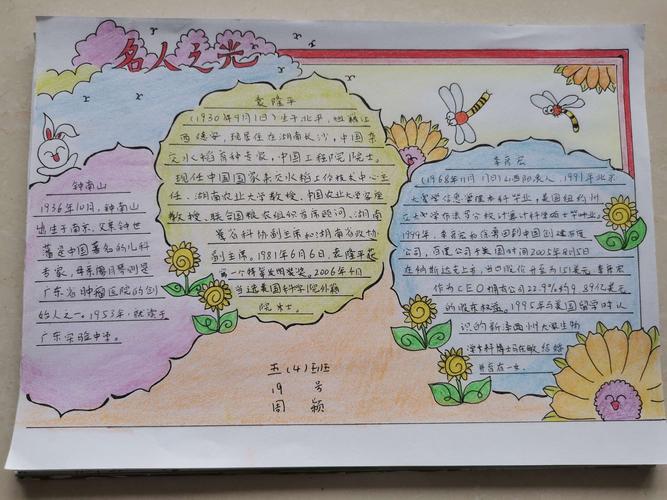 名人之光
钟南山
1936年10月，钟南山
出生于南京，父亲钟世
藩是中国著名的儿科
专家，母亲廖月琴则是
广东省肿瘤医院的创
始人之一。1953年，就读于
广东实验中学。
袁隆平
(1930年9月1日)生于北平，祖籍江
西德安，现居住在湖南长沙，中国杂
交水稻育种专家，中国工程院院士。
现任中国国家杂交水稻工作技术中心主
任、湖南农业大学教授、中国农业大学客座
教授、联合国粮农组织首席顾问、湖南
省科协副主席和湖南省政协
副主席。1981年6月6日，袁隆平获
第一个特等发明奖。2006年4月
当选美国科学院外籍
院士。
李彦宏
(1968年11月17日)山西阳泉人，1991年北京
大学信息管理专科毕业，美国纽约州
立大学布法罗分校计算计科学硕士毕业。
1999年，李彦宏和徐勇回到中国创建百度
公司，百度公司于美国时间2005年8月5日
在纳斯达克上市，当日股价升至为151美元，李彦宏
作为CEO拥有公司22.9%约9.89亿美元
的股东权益。1995年与美国留学时认
识的新泽西州大学生物
学专科博士马东敏结婚
并育有一女。
五(4)班
19号
周颖